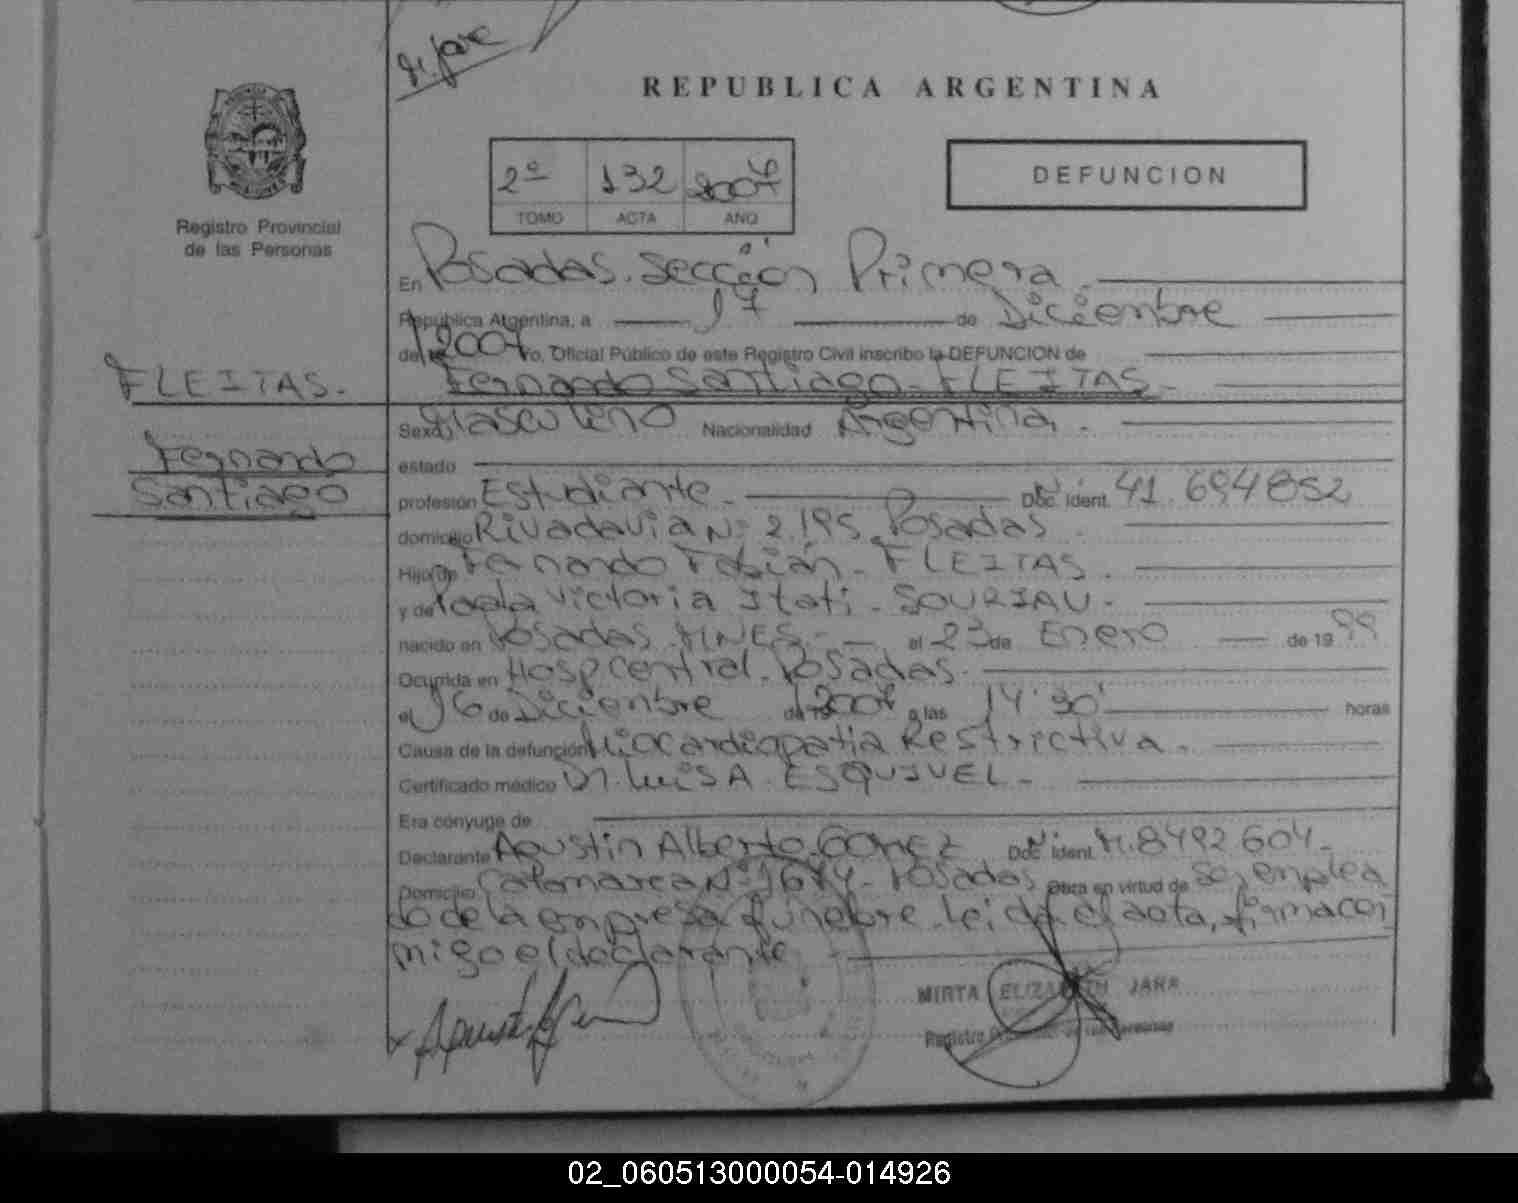 REPUBLICA ARGENTINA
2º 132 2007
TOMO ACTA AÑO
DEFUNCION
Registro Provincial
de las Personas
En Posadas. Sección Primera.
República Argentina, a 17 de Diciembre
de 2007 yo, Oficial Público de este Registro Civil inscribo la DEFUNCION de
FLEITAS.
Fernando Santiago. FLEITAS.
Fernando
Santiago
Sexo Masculino Nacionalidad Argentina.
estado
profesión Estudiante. Doc. Ident. 41.694852
domicilio Rivadavia Nº 2195. Posadas.
Hijo de Fernando Fabián. FLEITAS.
y de Paola Victoria Itati. SOURIAU.
nacido en Posadas. MNES. el 23 de Enero de 1999
Ocurrida en Hosp. Central. Posadas.
el 16 de Diciembre de 2007 a las 14 30' horas
Causa de la defunción Miocardiopatia Restrictiva.
Certificado médico Dr. Luis A. ESQUIVEL.
Era cónyuge de
Declarante Agustin Alberto GOMEZ Doc. Ident. M. 8492604.
Domicilio Catamarca Nº Posadas Obra en virtud de ser emplea
do de la empresa fúnebre. Leida el acta, firma con
migo el declarante
MIRTA ELIZABETH JARA
Registro de las Personas
02_060513000054-014926